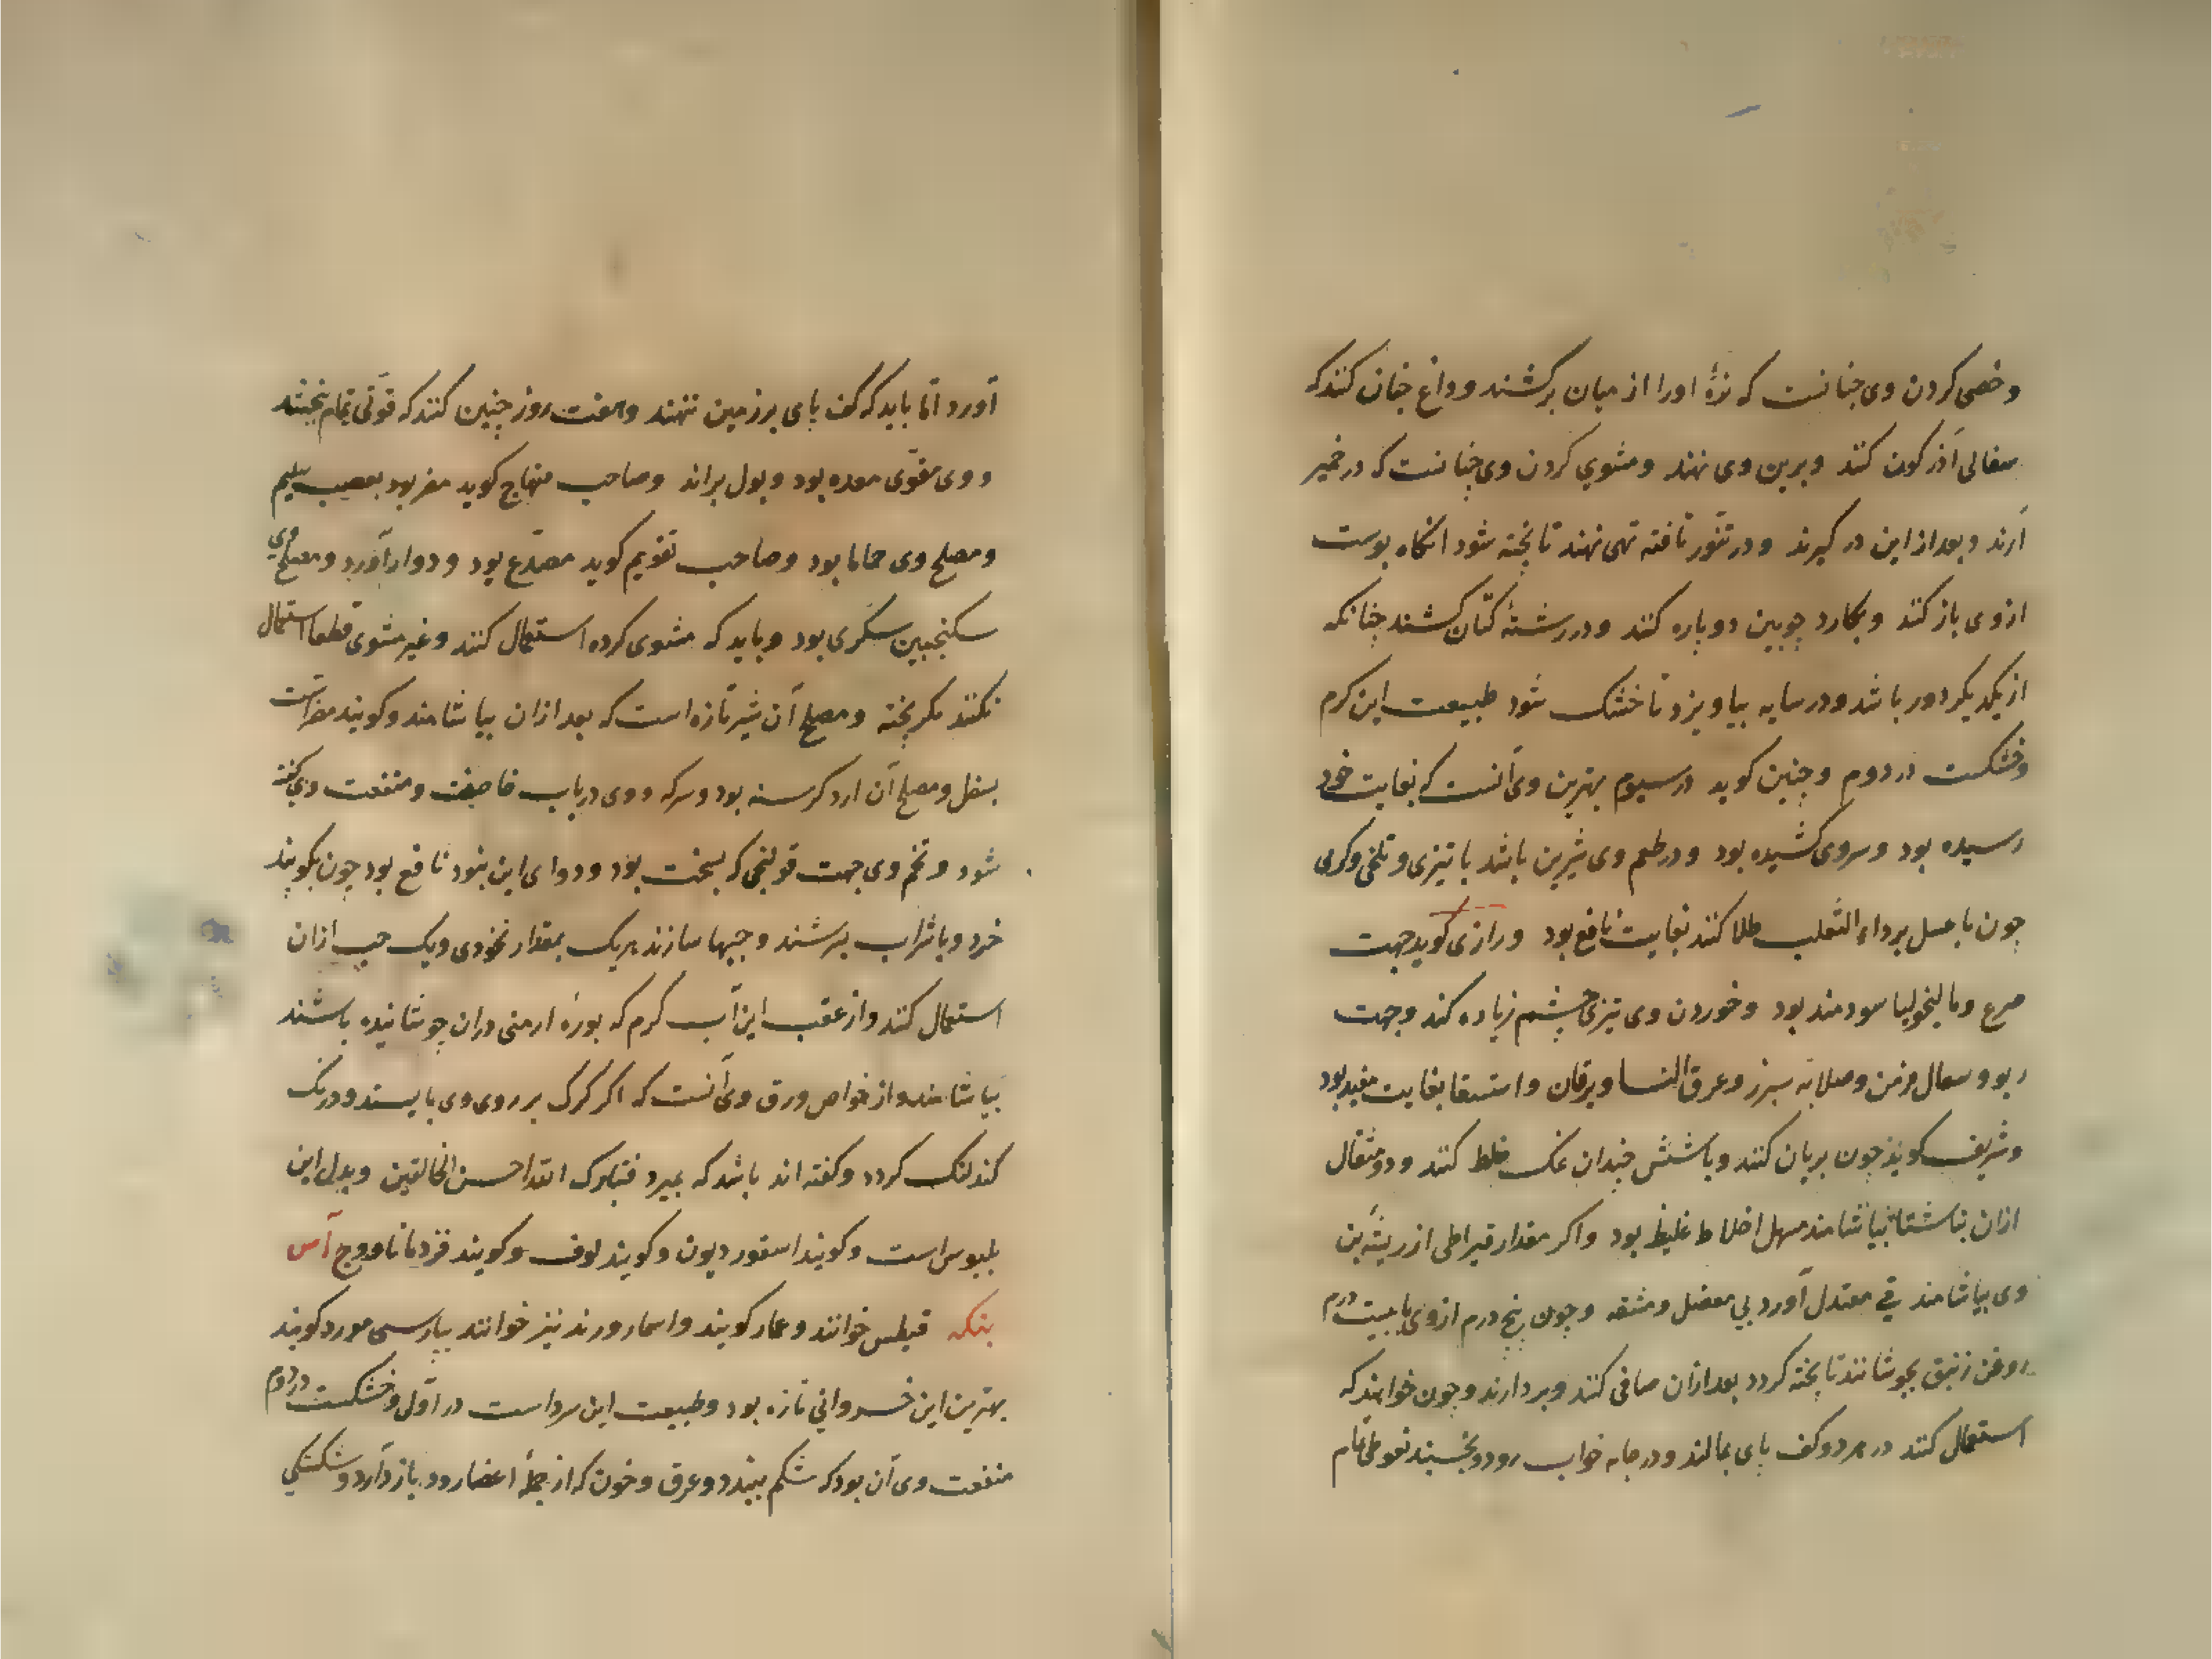 و خصی کردن وی چنانست که نرۀ او را از میان برکشند و داغ چنان کنند که
سفالی آذرکون کنند و برین وی نهند و مشوی کردن وی چنانست که در خمیر
آرند و بعد از این در کیرند و در تنور تافته تهی نهند تا پخته شود انکاه پوست
ازوی باز کنند و بکارد چوبین دو پاره کنند و در رشتۀ کتان کشند چنانکه
از یکدیکر دور باشد و در سایه بیاویزد تا خشک شود طبیعت این کرم
و خشکست در دوم و چنین کوید در سیوم بهترین وی آنست که بغایت خود
رسیده بود و سروی کشیده بود و در طعم وی شیرین باشد با تیزی و تلخی و کرمی
چون با عسل بر داء الثعلب طلا کنند بغایت نافع بود و رازی کوید جهت
صرع و مالیخولیا سودمند بود و خوردن وی تیزی چشم زیاده کند و جهت
ربو و سعال مزمن و صلابه سپرز و عرق النسا و یرقان و استسقا بغایت مفید بود
و شریف کوید چون بریان کنند و با شش چندان نمک خلط کنند و دو مثقال
ازان بناشتا بیاشامند مسهل اخلاط غلیظ بود و اکر مقدار قیراطی از ریشۀ بن
وی بیاشامند قی معتدل آورد بی معضل و مشقه و چون پنج درم ازوی با بیست درم
روغن زنبق بجوشانند تا پخته کردد بعد ازان صافی کنند و بردارند و چون خواهند که
استعمال کنند در هر دو کف پای بمالند و در جامه خواب رود و بخسبند نعوظی تمام
آورد اما باید که کف پای بر زمین ننهند و هفت روز چنین کنند که قوتی تمام بخشد
و وی مقوی معده بود و بول براند و صاحب منهاج کوید مضر بود بعصب سلیم
و مصلح وی حماما بود و صاحب تقویم کوید مصدع بود و دوار آورد و مصلح وی
سکنجبین سکری بود و باید که مشوی کرده استعمال کنند و غیر مشوی قطعا استعمال
نکنند مکر پخته و مصلح آن شیر تازه است که بعد ازان بیاشامند و کویند مضر است
بسفل و مصلح آن ارد کرسنه بود و سرکه و وی در باب فا صفت و منفعت وی کفته
شود و تخم وی جهت قولنجی که سخت بود و دوای این نبود نافع بود چون بکوبند
خرد و با شراب بسرشند و حبها سازند هریک بمقدار نخودی و یک حب ازان
استعمال کنند و از عقب این آب کرم که بورۀ ارمنی دران جوشانیده باشند
بیاشامند و از خواص ورق وی آنست که اکر کرک بر روی وی بایستد و درنک
کند لنک کردد و کفته اند باشد که بمیرد فتبارک الله احسن الخالقین و بدل این
بلبوس است و کویند اسقوردیون و کویند لوف و کویند قردمانا و وج آس
بنکه قیطس خوانند و عمار کویند و اسمار و رند نیز خوانند بپارسی مورد کویند
بهترین این خسروانی تازه بود و طبیعت این سرد است در اول و خشکست در دوم
منفعت وی آن بود که شکم ببندد و عرق و خون که از جملۀ اعضا رود باز دارد و شکستکی